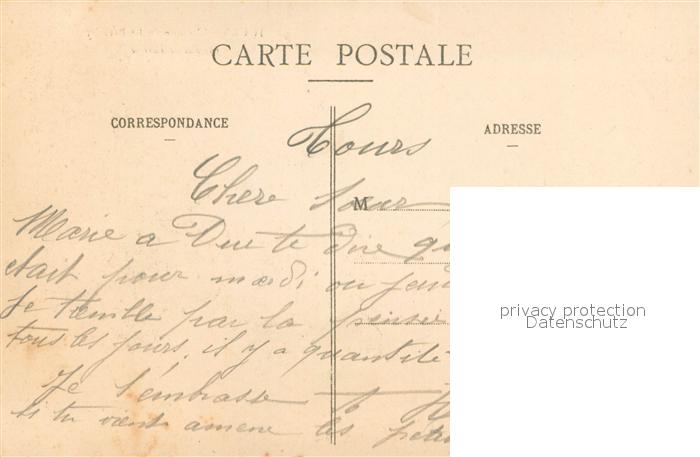 CARTE POSTALE
CORRESPONDANCE
ADRESSE
Tours
Chere Sœur
M
Marie a Due te dire qu
était pour mardi ou jeu
Je tremble par la pensée
tous les jours, il y a quantité
Je t'embrasse
si tu vient amene les
privacy protection
Datenschutz